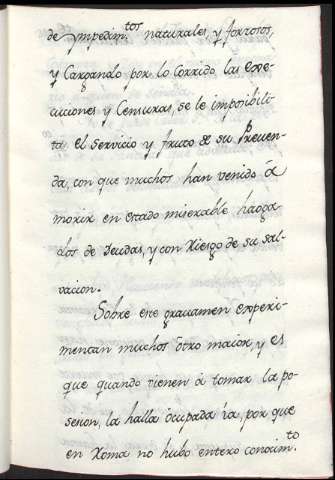 de ympedim.tos naturales, y forzosos,
y Cargando por lo Corrido las exe-
cuciones y Censuras, se le imposibili-
ta el Servicio y fruto de su Preven-
da, con que muchos han venido â
morir en estado miserable haoga
dos de Deudas, y con Riesgo de su sal-
vacion.
Sobre este gravamen experi-
mentan muchos ôtro maior, y es
que quando vienen â tomar la po-
sesion, la halla ôcupada ya, por que
en Roma no hubo entero conocim.to